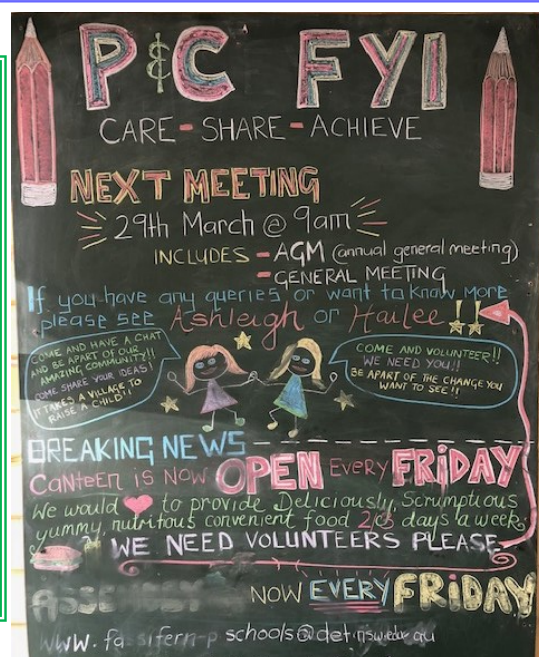 P&C FYI
CARE - SHARE - ACHIEVE
NEXT MEETING
29th March @ 9am
INCLUDES - AGM (annual general meeting)
- GENERAL MEETING
If you have any queries or want to know more
please see Ashleigh or Hailee!!
COME AND HAVE A CHAT
AND BE APART OF OUR
AMAZING COMMUNITY!!
COME SHARE YOUR IDEAS!
IT TAKES A VILLAGE TO
RAISE A CHILD!!
COME AND VOLUNTEER!!
WE NEED YOU!!
BE APART OF THE CHANGE YOU
WANT TO SEE!!
BREAKING NEWS
CANTEEN IS NOW OPEN EVERY FRIDAY
We would to provide Deliciously, Scrumptious
yummy, nutritous convenient food days a week
WE NEED VOLUNTEERS PLEASE
NOW EVERY FRIDAY
www. schools@det.nsw.edu.au